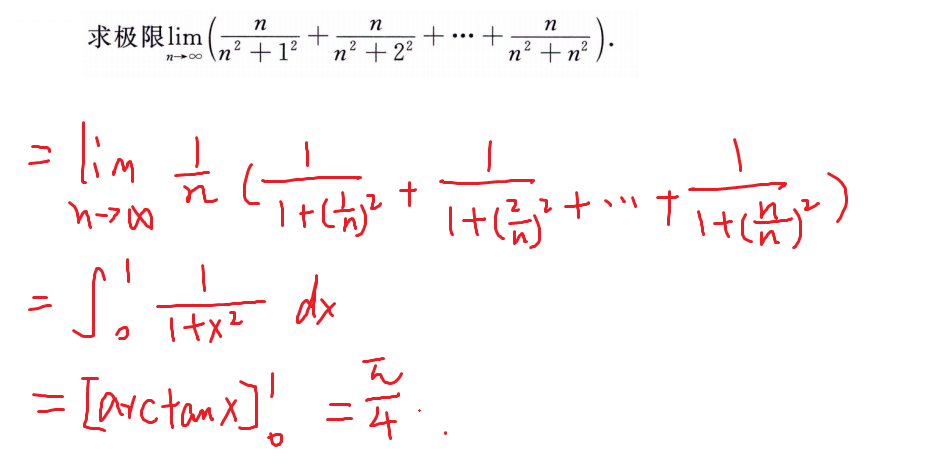 求极限lim_{n→∞}(n/(n²+1²) + n/(n²+2²) + ⋯ + n/(n²+n²)).
= lim_{n→∞} 1/n (1/(1+(1/n)²) + 1/(1+(2/n)²) + ⋯ + 1/(1+(n/n)²))
= ∫₀¹ 1/(1+x²) dx
= [arctanx]₀¹ = π/4.